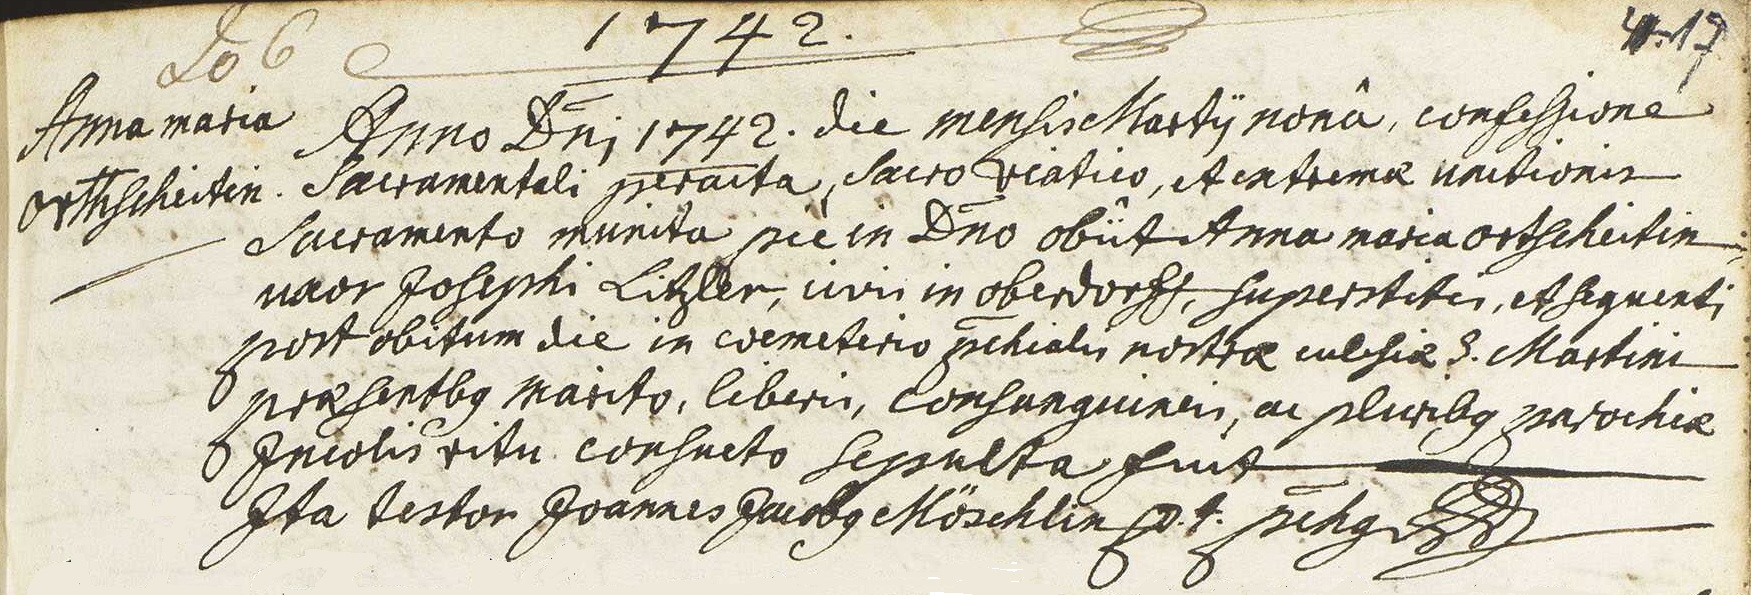 Lo 6 1742. 17
Anna maria
Ortscheitin.
Anno Dnj 1742. die mensis Martÿ nonâ, confessione
Sacramentali peracta, Sacro viatico, et extremæ unctionis
Sacramento munita pie in Dno obiit Anna maria ortscheitin
uxor Josephi Litzler, civis in oberdorff, superstitis, et sequenti
post obitum die in coemeterio pchialis nostræ ecclesiæ S. Martini
præsentbg marito, liberis, consanguineis, ac pluribg parochiæ
Incolis ritu consueto sepulta fuit
Ita testor Joannes Jacobg Möschlin p.t. pchg